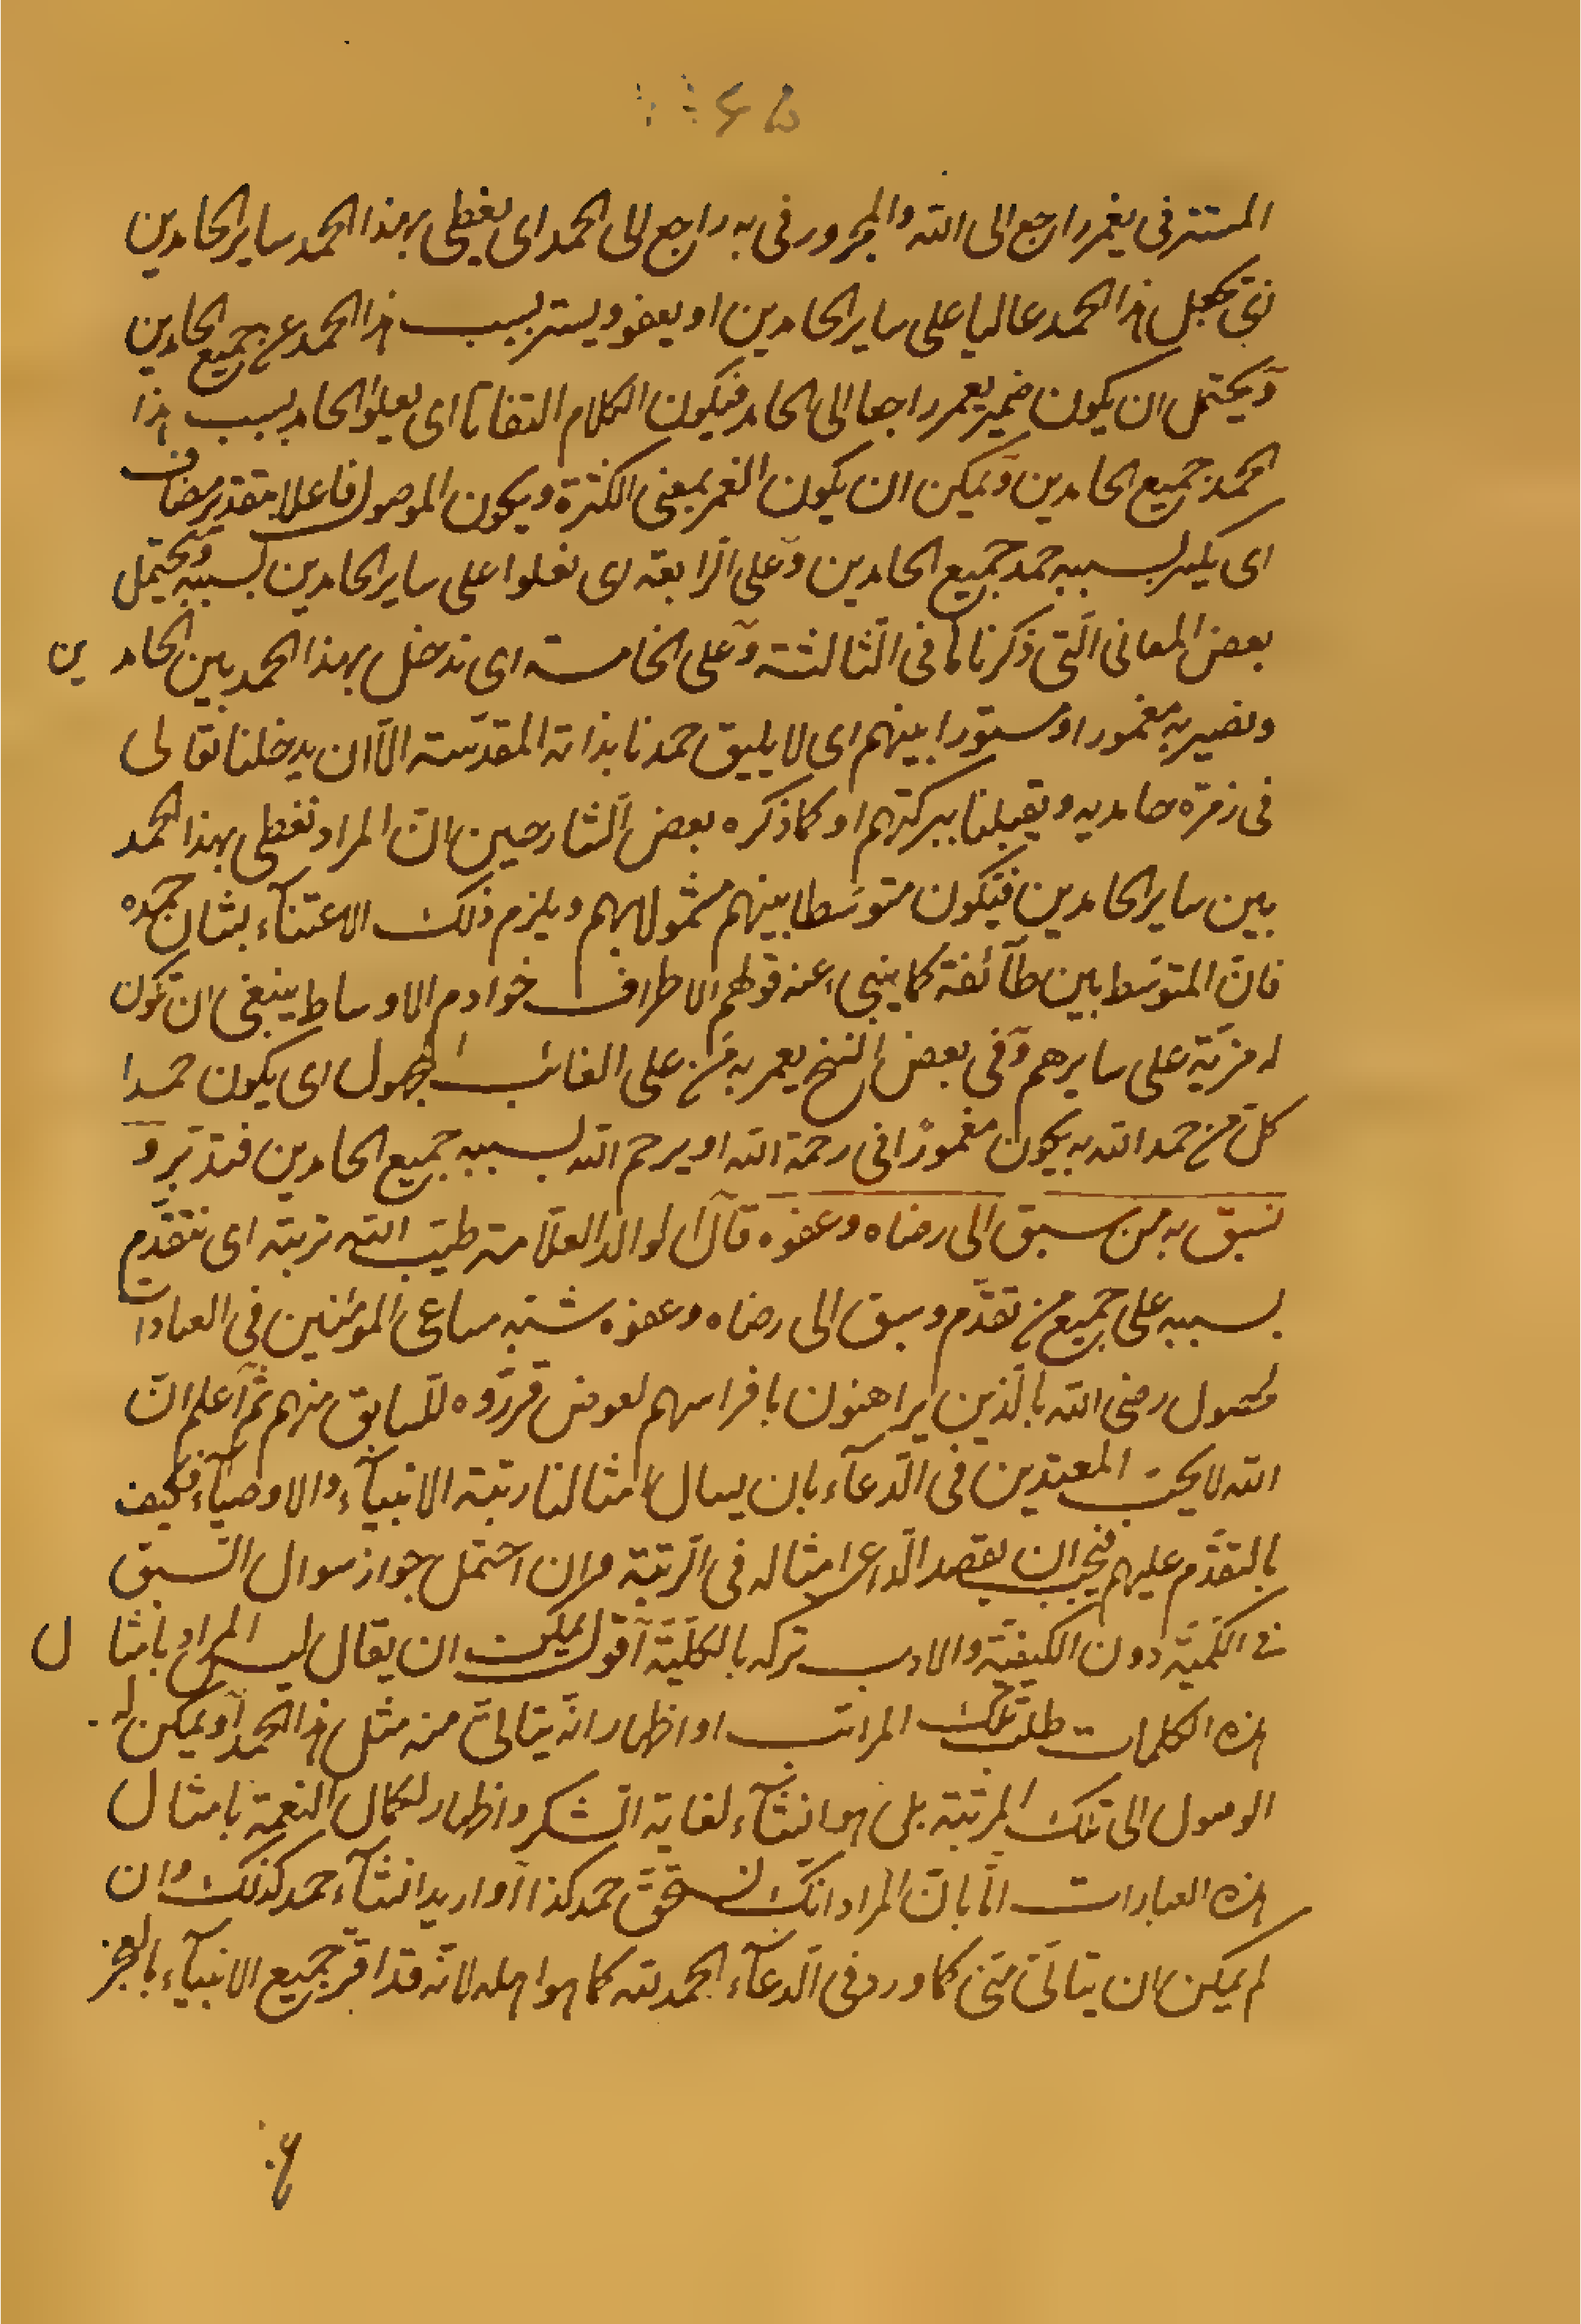 المستتر فى يغمر راجع الى الله والمجرور فى به راجع الى الحمد اى يغطى بهذا الحمد ساير الحامدين
يجعل هذا الحمد عاليا على ساير الحامدين او يعفو ويستر بسبب هذا الحمد عن جميع الحامدين
ويحتمل ان يكون ضمير يغمر راجعا الى الحامد فيكون الكلام التفاتا اى يعلو الحامد بسبب هذا
الحمد جميع الحامدين ويمكن ان يكون الغمر بمعنى الكثرة ويكون الموصول فاعلا بتقدير مضاف
اى يكثر بسببه حمد جميع الحامدين وعلى الرابعة اى نعلوا على ساير الحامدين بسببه ويحتمل
بعض المعانى التى ذكرناها فى الثالثة وعلى الخامسة اى ندخل بهذا الحمد بين الحامدين
ونصير به مغمورا ومستورا بينهم اى لا يليق حمدنا بذاته المقدسة الا ان يدخلنا تعالى
فى زمرة حامديه ويقبلنا ببركتهم او كما ذكره بعض الشارحين ان المراد نغطى بهذا الحمد
بين ساير الحامدين فنكون متوسطا بينهم مشمولا بهم ويلزم ذلك الاعتناء بشان حمده
فان المتوسط بين طائفة كما ينبىء عنه قولهم الاطراف خوادم الاوساط ينبغى ان تكون
له مزية على سايرهم وفى بعض النسخ يعمر به من على الغائب المجهول اى يكون حمدا
كل من حمد الله به يكون مغمورا فى رحمة الله او يرحم الله بسببه جميع الحامدين فتدبر و
نسبق به من سبق الى رضاه وعفوه قال الوالد العلامة طيب الله تربته اى نتقدم
بسببه على جميع من تقدم وسبق الى رضاه وعفوه شبه مساعى المؤمنين فى العبادات
لحصول رضى الله بالذين يراهنون بافراسهم لعوض قرروه للسابق منهم ثم اعلم ان
الله لا يحب المعتدين فى الدعاء بان يسال امثالنا رتبة الانبياء والاوصياء فكيف
بالتقدم عليهم فيجب ان يقصد الداعى امثاله فى الرتبة وان احتمل جواز سوال السبق
فى الكمية دون الكيفية والادب تركه بالكلية اقول يمكن ان يقال ليس المراد بامثال
هذه الكلمات طلب تلك المراتب او اظهار انه يتاتى منه مثل هذا الحمد او يمكن له
الوصول الى تلك المرتبة بل هو انشاء لغاية الشكر واظهار لكمال النعمة بامثال
هذه العبارات اما بان المراد انك تستحق حمد كذا او اريد انشاء حمد كذلك وان
لم يمكن ان يتاتى منى كما ورد فى الدعاء الحمد لله كما هو اهله لانه قد اقر جميع الانبياء بالعجز